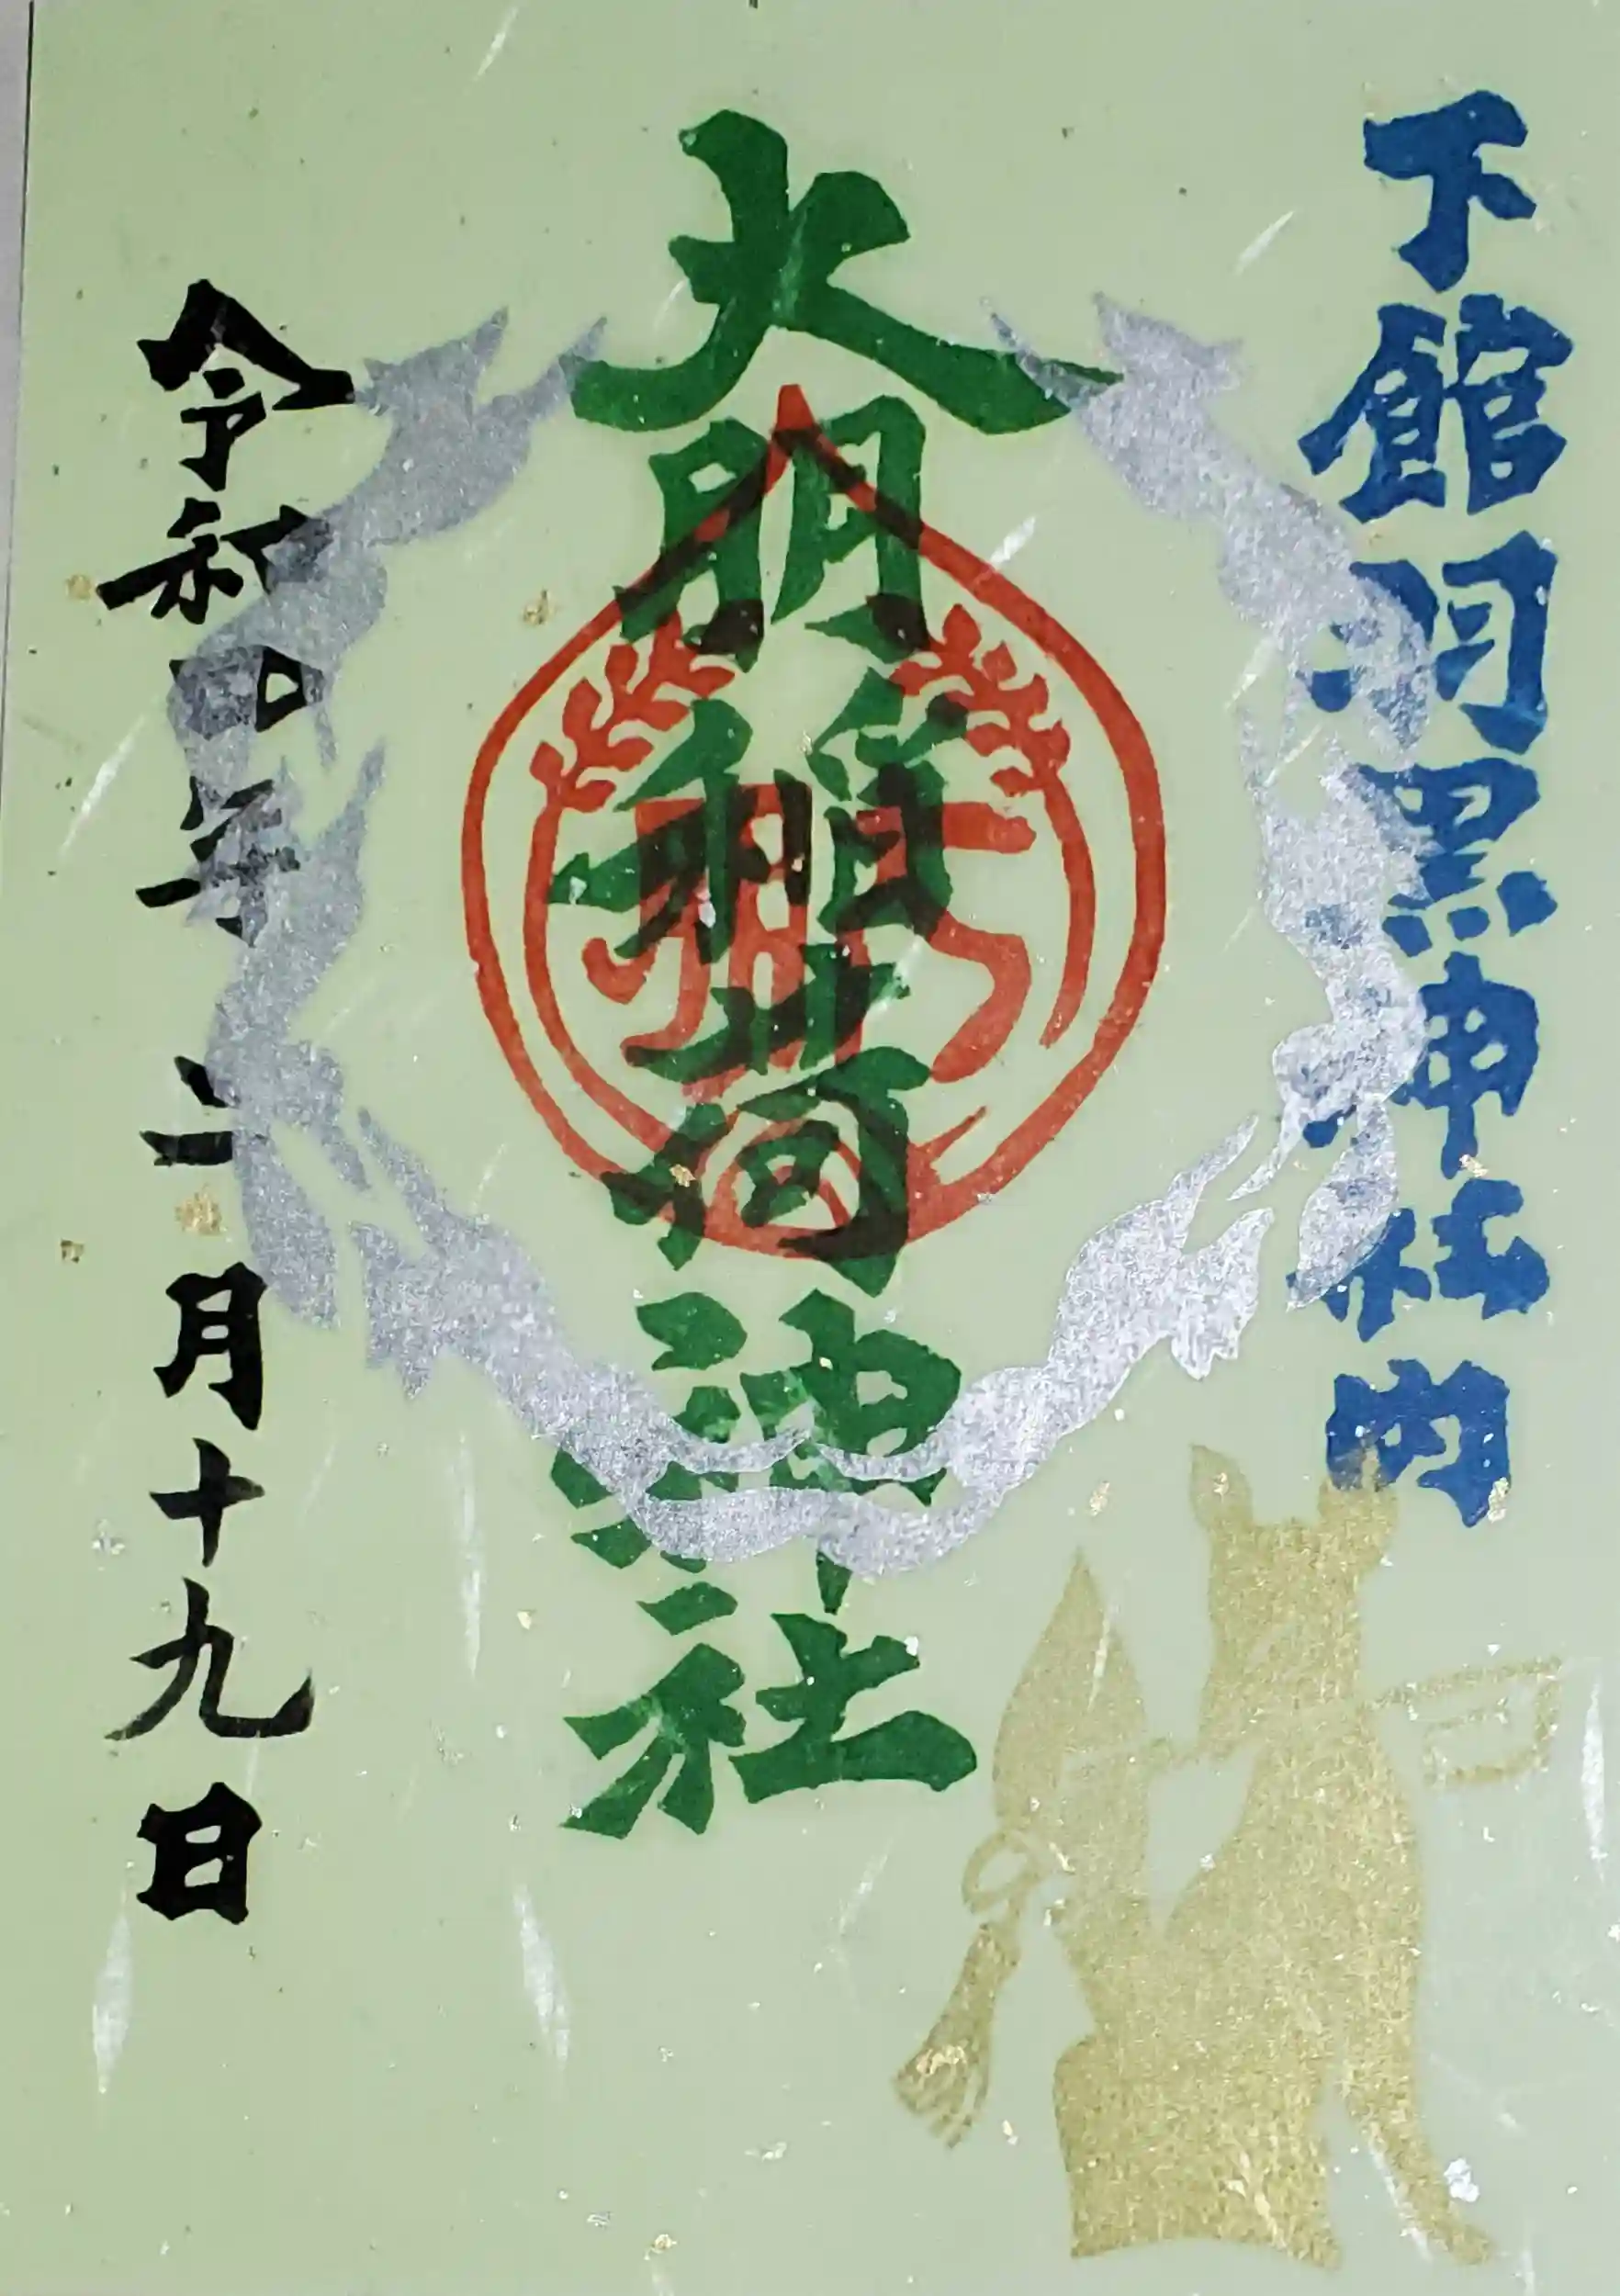 下館羽黒神社内
大朋稲荷神社
令和四年二月十九日